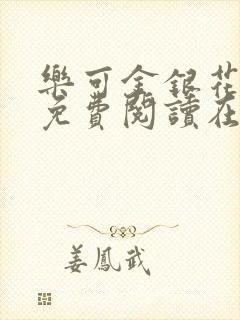 樂可金銀花
免費閱讀在
姜鳳武